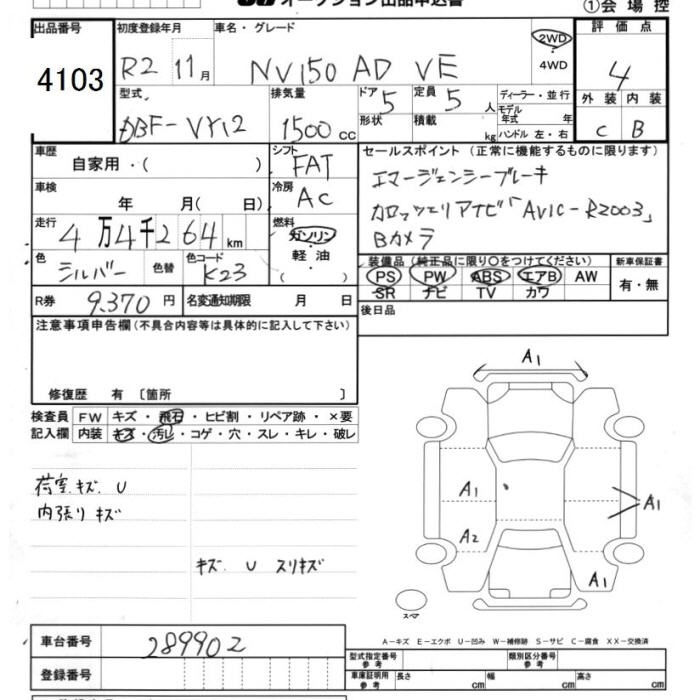 オークション出品申込書 ①会場控
出品番号 4103
初度登録年月 R2 11月
車名・グレード NV150 AD VE
2WD 4WD
評価点 4
型式 DBF-VY12
排気量 1500cc
ドア 5 形状
定員 5人 積載 kg
ディーラー・並行
モデル年式 年
ハンドル 左・右
外装 C 内装 B
車歴 自家用・( )
シフト FAT
車検 年 月( 日)
冷房 AC
走行 4万4千264km
燃料 ガソリン・軽油 ( )
色 シルバー 色替 色コード K23
R券 9,370円 名変通知期限 月 日
セールスポイント (正常に機能するものに限ります)
エマージェンシーブレーキ
カロッツェリアナビ「AVIC-RZ003」
Bカメラ
装備品 (純正品に限り○をつけてください) 新車保証書
PS PW ABS エアB AW 有・無
SR ナビ TV カワ
後日品
注意事項申告欄 (不具合内容等は具体的に記入して下さい)
修復歴 有 〔箇所 〕
検査員 FW キズ・飛石・ヒビ割・リペア跡・×要
記入欄 内装 キズ・汚レ・コゲ・穴・スレ・キレ・破レ
荷室 キズ U
内張り キズ
キズ U スリキズ
A1
A1
A1
A2
A1
スペア
車台番号 289902
登録番号
A-キズ E-エクボ U-凹み W-補修跡 S-サビ C-腐食 XX-交換済
型式指定番号 参考 類別区分番号 参考
車庫証明用 参考 長さ cm 幅 cm 高さ cm